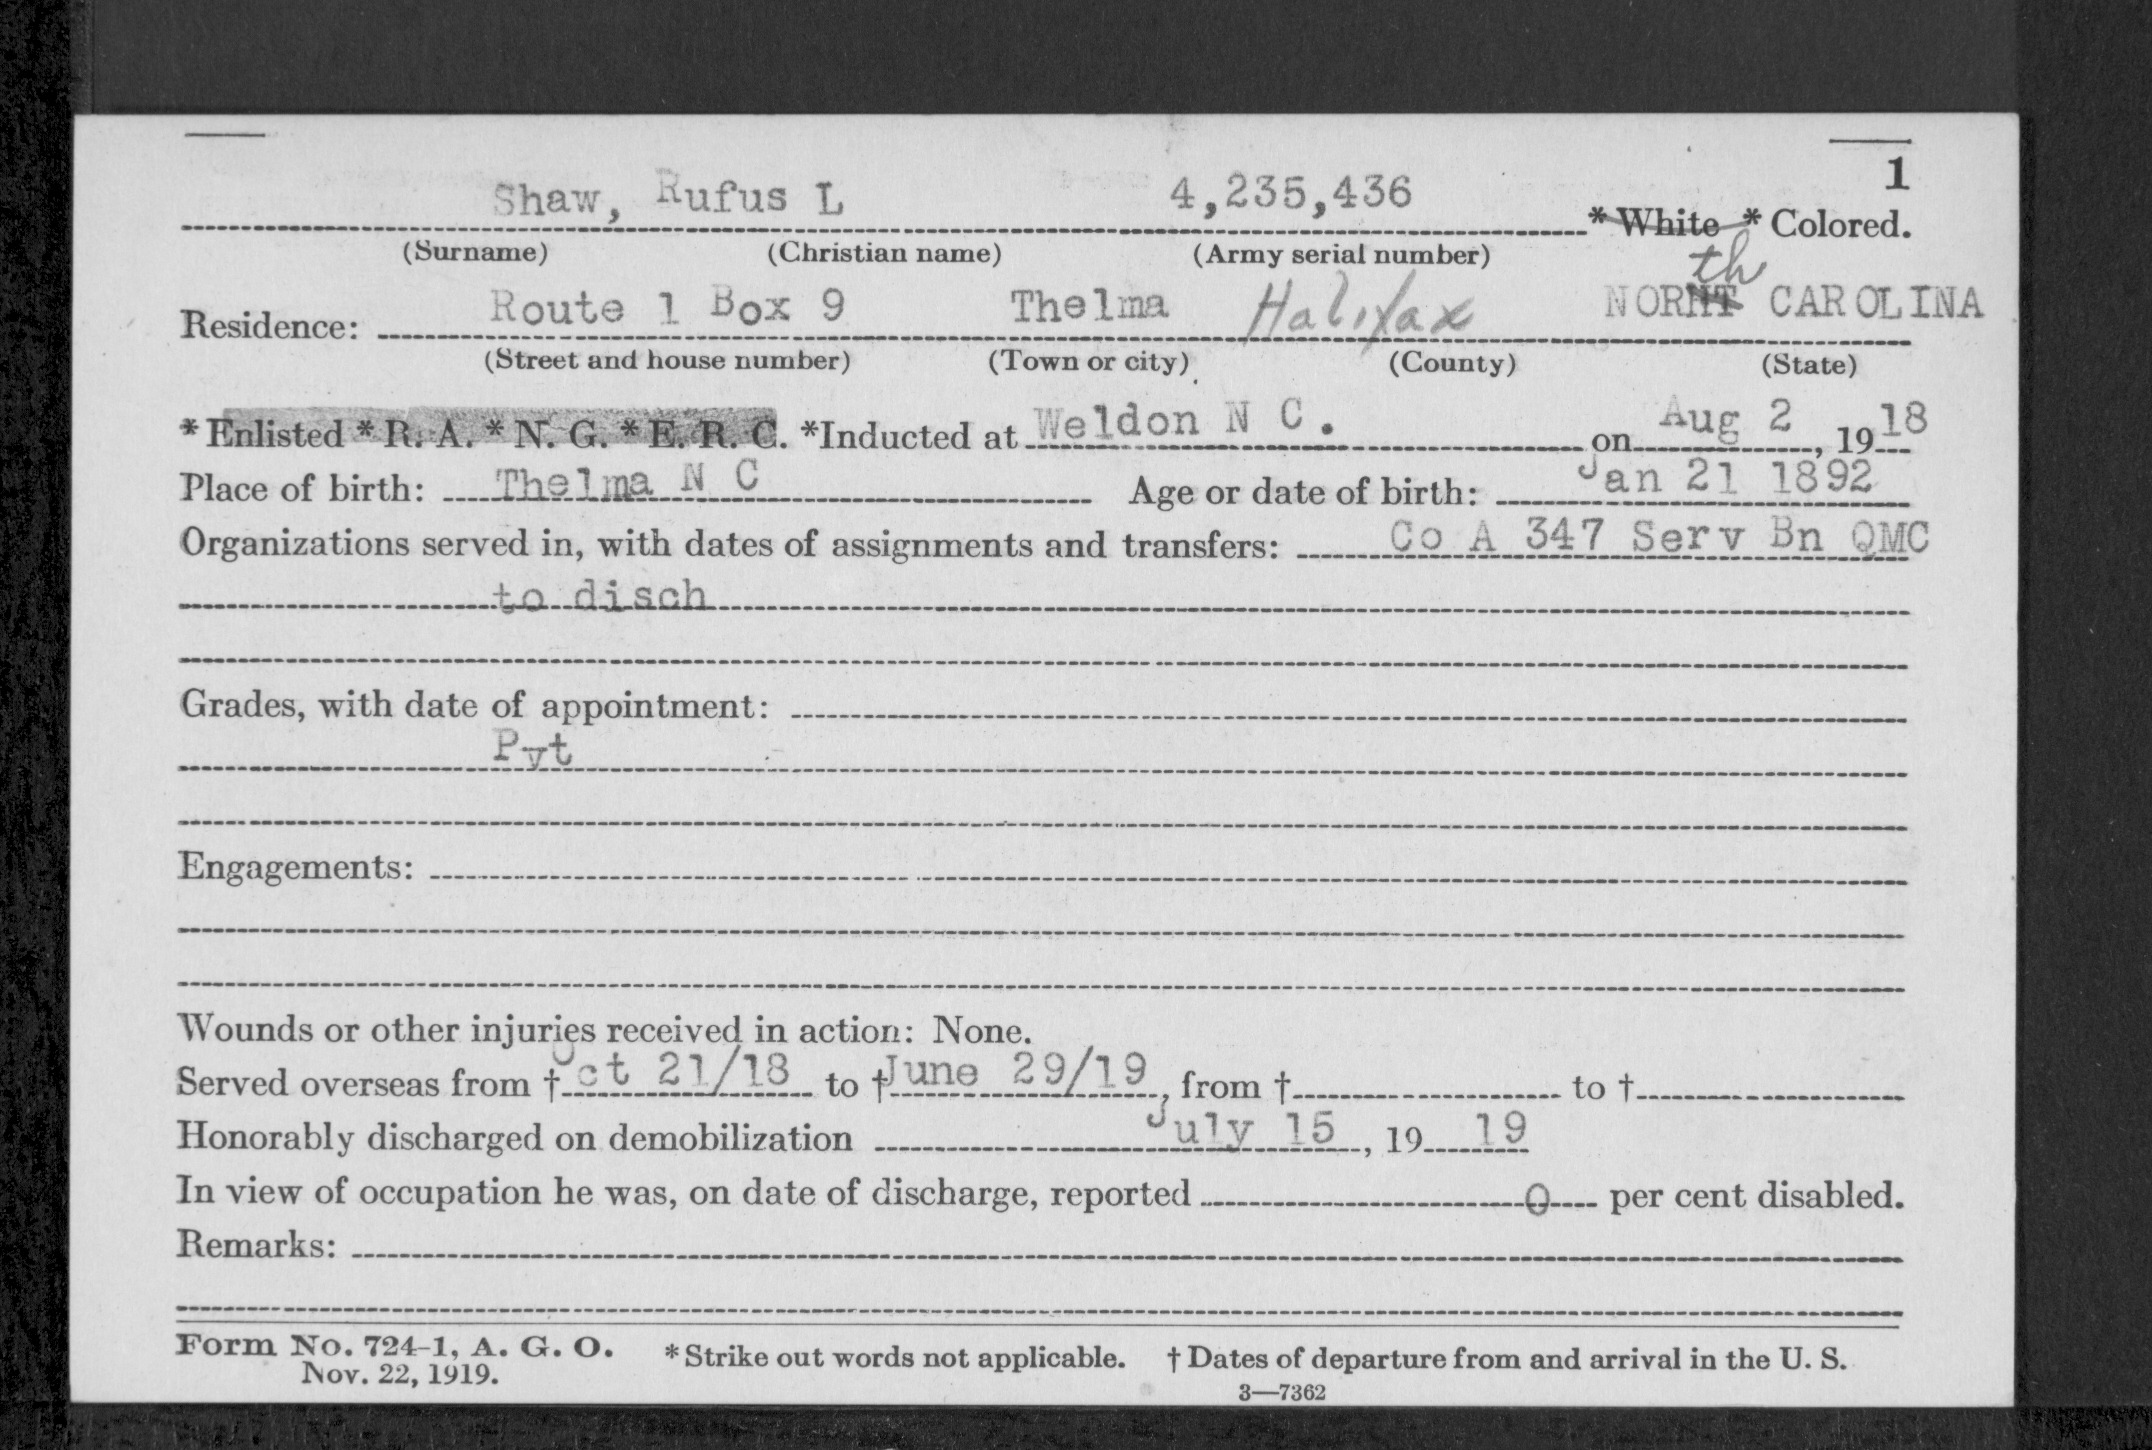 1
Shaw, Rufus L 4,235,436 * White * Colored.
(Surname) (Christian name) (Army serial number)
th
Residence: Route 1 Box 9 Thelma Halifax NORNT CAROLINA
(Street and house number) (Town or city) (County) (State)
* Enlisted * R. A. * N. G. * E. R. C. *Inducted at Weldon N C. on Aug 2, 1918
Place of birth: Thelma N C Age or date of birth: Jan 21 1892
Organizations served in, with dates of assignments and transfers: Co A 347 Serv Bn QMC
to disch
Grades, with date of appointment:
Pvt
Engagements:
Wounds or other injuries received in action: None.
Served overseas from † Oct 21/18 to † June 29/19, from † to †
Honorably discharged on demobilization July 15, 19 19
In view of occupation he was, on date of discharge, reported 0 per cent disabled.
Remarks:
Form No. 724-1, A. G. O. * Strike out words not applicable. † Dates of departure from and arrival in the U. S.
Nov. 22, 1919.
3—7362